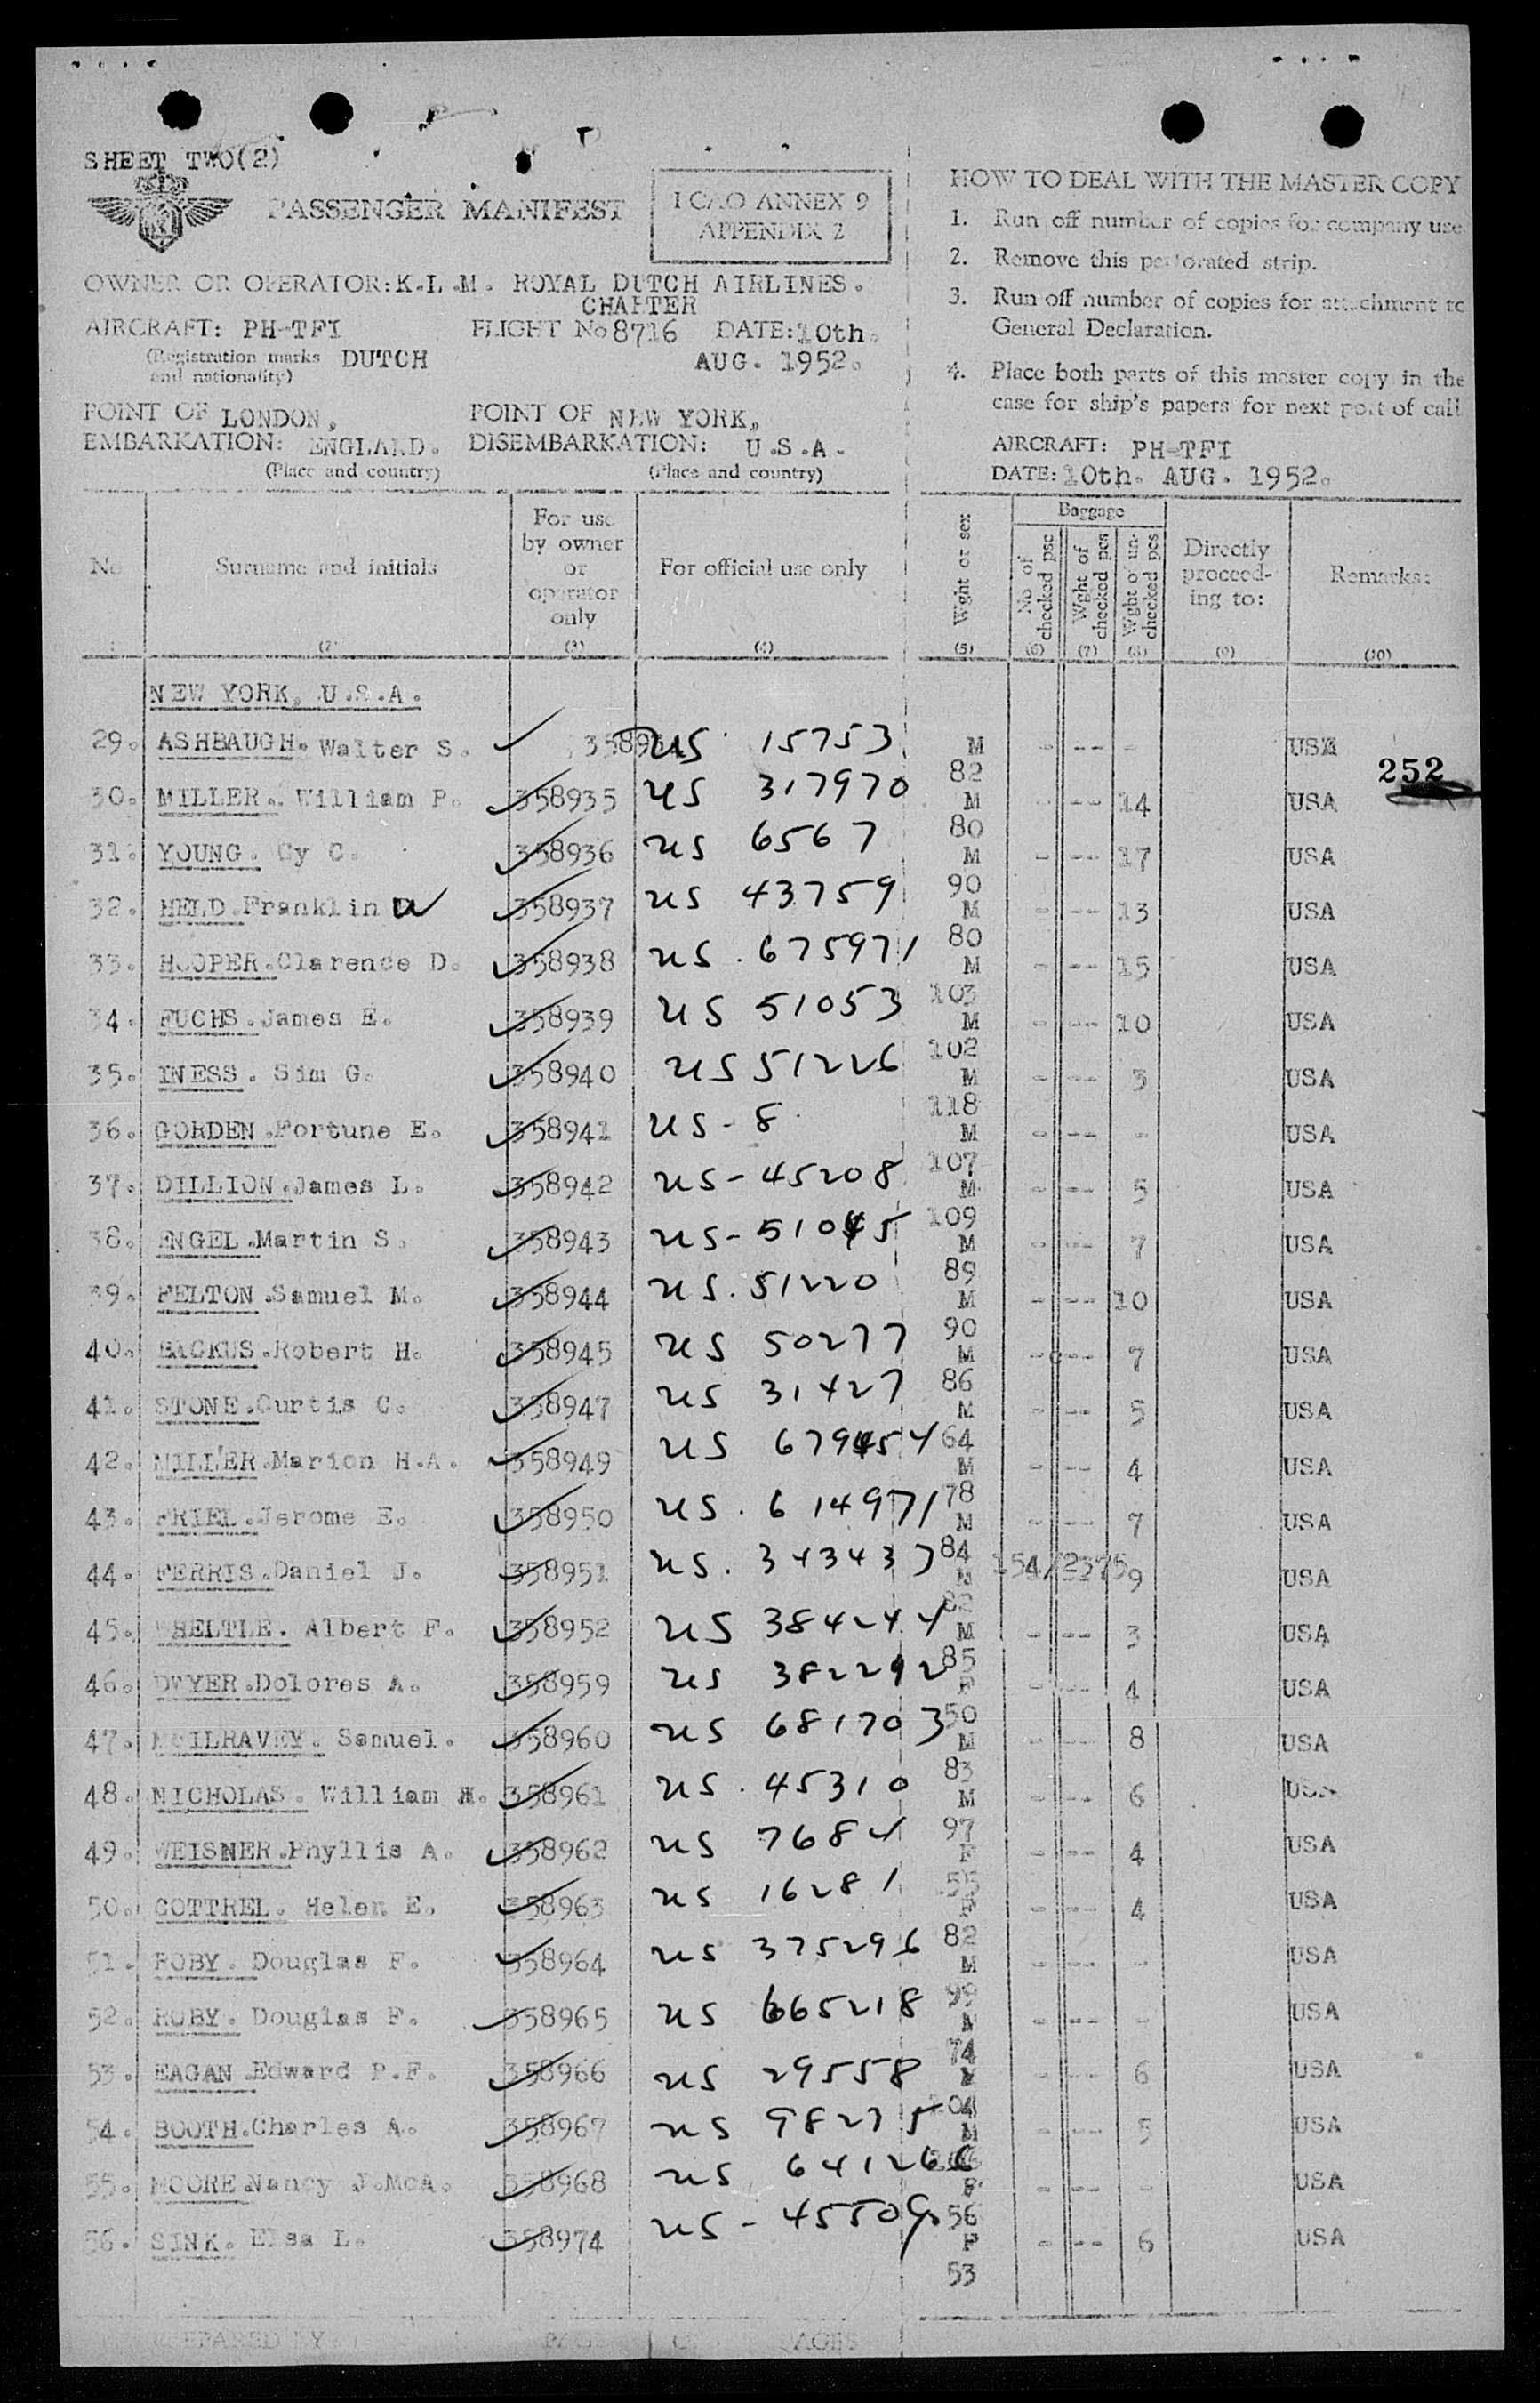 SHEET TWO(2)
PASSENGER MANIFEST
ICAO ANNEX 9
APPENDIX 2
OWNER OR OPERATOR: K.L.M. ROYAL DUTCH AIRLINES.
CHARTER
AIRCRAFT: PH-TFI FLIGHT No 8716 DATE: 10th.
(Registration marks and nationality) DUTCH AUG. 1952.
POINT OF EMBARKATION: LONDON, ENGLAND.
(Place and country)
POINT OF DISEMBARKATION: NEW YORK, U.S.A.
(Place and country)
HOW TO DEAL WITH THE MASTER COPY
1. Run off number of copies for company use
2. Remove this perforated strip.
3. Run off number of copies for attachment to
General Declaration.
4. Place both parts of this master copy in the
case for ship's papers for next port of call
AIRCRAFT: PH-TFI
DATE: 10th. AUG. 1952.
No Surname and initials (2) For use by owner or operator only (3) For official use only (4) Wght or sex (5) Baggage No of checked psc (6) Wght of checked pcs (7) Wght o un-checked pcs (8) Directly proceed-ing to: (9) Remarks: (10)
NEW YORK, U.S.A.
29. ASHBAUGH. Walter S. US 15753 M - -- - USA
252
82
30. MILLER. William P. 358935 US 317970 M - -- 14 USA
80
31. YOUNG. Cy C. 358936 US 6567 M - -- 17 USA
90
32. HELD.Franklin W 358937 US 43759 M - -- 13 USA
80
33. HOOPER.Clarence D. 358938 US. 675971 M - -- 15 USA
103
34. FUCHS.James E. 358939 US 51053 M - -- 10 USA
102
35. INESS. Sim G. 358940 US 51226 M - -- 3 USA
118
36. GORDEN.Fortune E. 358941 US - 8 M - -- - USA
107
37. DILLION.James L. 358942 US - 45208 M - -- 5 USA
109
38. ENGEL.Martin S. 358943 US - 51045 M - -- 7 USA
89
39. FELTON.Samuel M. 358944 US. 51220 M - -- 10 USA
90
40. BACKUS.Robert H. 358945 US 50277 M - -- 7 USA
86
41. STONE.Curtis C. 358947 US 31427 M - -- 5 USA
64
42. MILLER.Marion H.A. 358949 US M - -- 4 USA
78
43. FRIEL.Jerome E. 358950 US. 614971 M - -- 7 USA
84
44. FERRIS.Daniel J. 358951 US. 343437 M 154/2375 9 USA
82
45. WHELTLE. Albert F. 358952 US 384244 M - -- 3 USA
85
46. DWYER.Dolores A. 358959 US 382292 F - -- 4 USA
50
47. McILRAVEY. Samuel. 358960 US 681703 M - -- 8 USA
83
48. NICHOLAS. William H. 358961 US. 45310 M - -- 6 USA
97
49. WEISNER.Phyllis A. 358962 US 7684 F - -- 4 USA
55
50. COTTREL. Helen E. 358963 US 16281 F - -- 4 USA
82
51. ROBY. Douglas F. 358964 US 375296 M - -- - USA
99
52. ROBY. Douglas F. 358965 US 665218 M - -- - USA
74
53. EAGAN.Edward P.F. 358966 US 29558 M - -- 6 USA
104
54. BOOTH.Charles A. 358967 US 98275 M - -- 5 USA
55. MOORE Nancy J.McA. 358968 US 641266 F - -- - USA
56
56. SINK. Elsa L. 358974 US - 45509 F - -- 6 USA
53
PREPARED BY